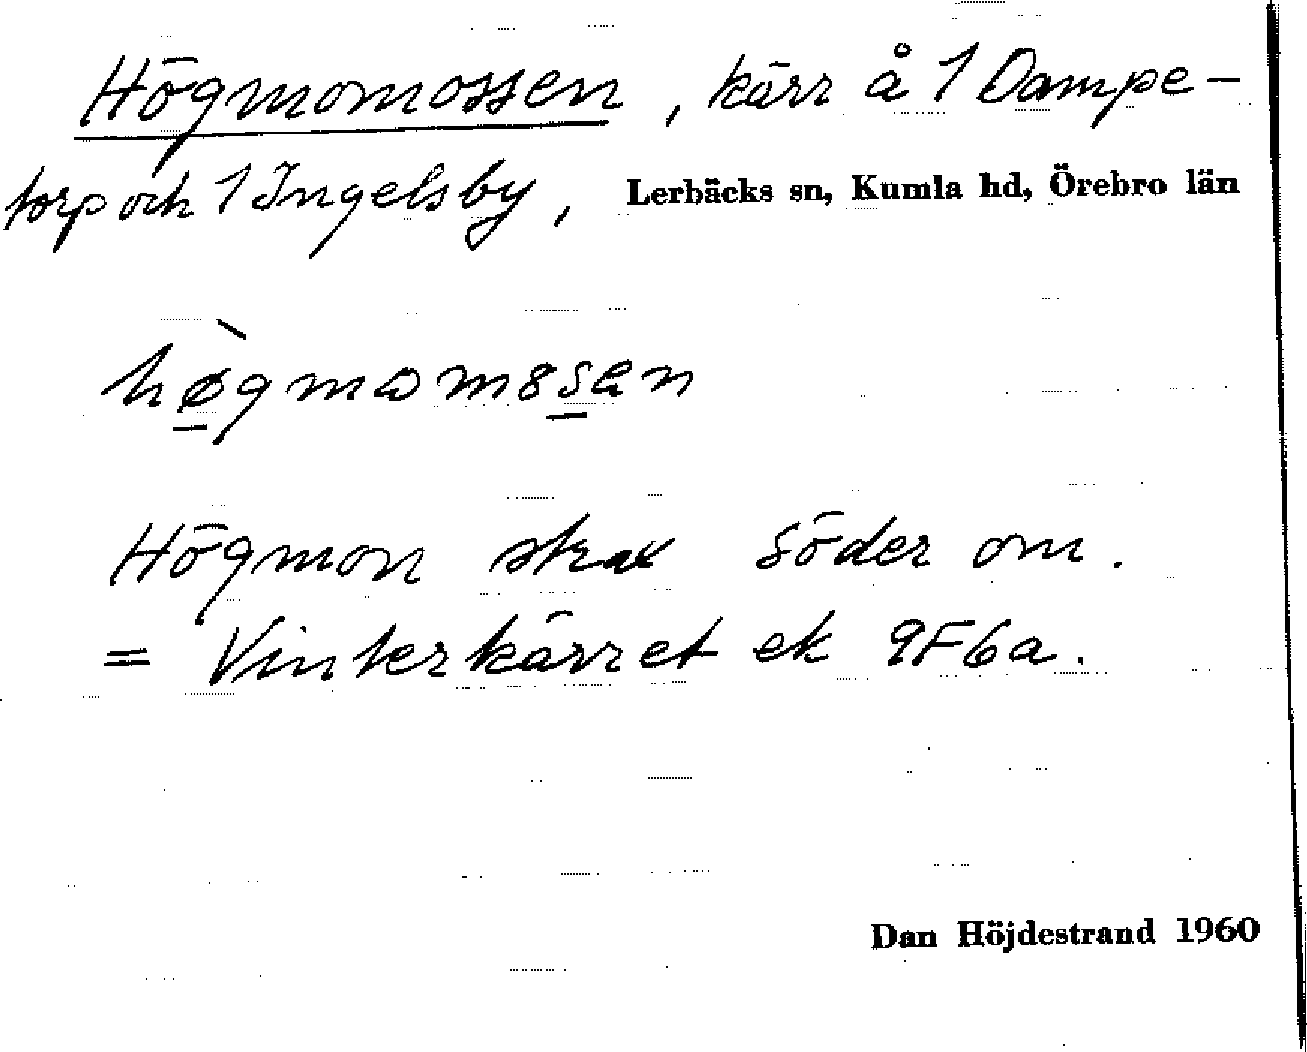 Högmomossen, kärr å 1 Dampe-
torp och 1 Ingelsby, Lerbäcks sn, Kumla hd, Örebro län
hø̀gmωm8san
Högmon strax söder om.
= Vinterkärret ek 9F6a.
Dan Höjdestrand 1960